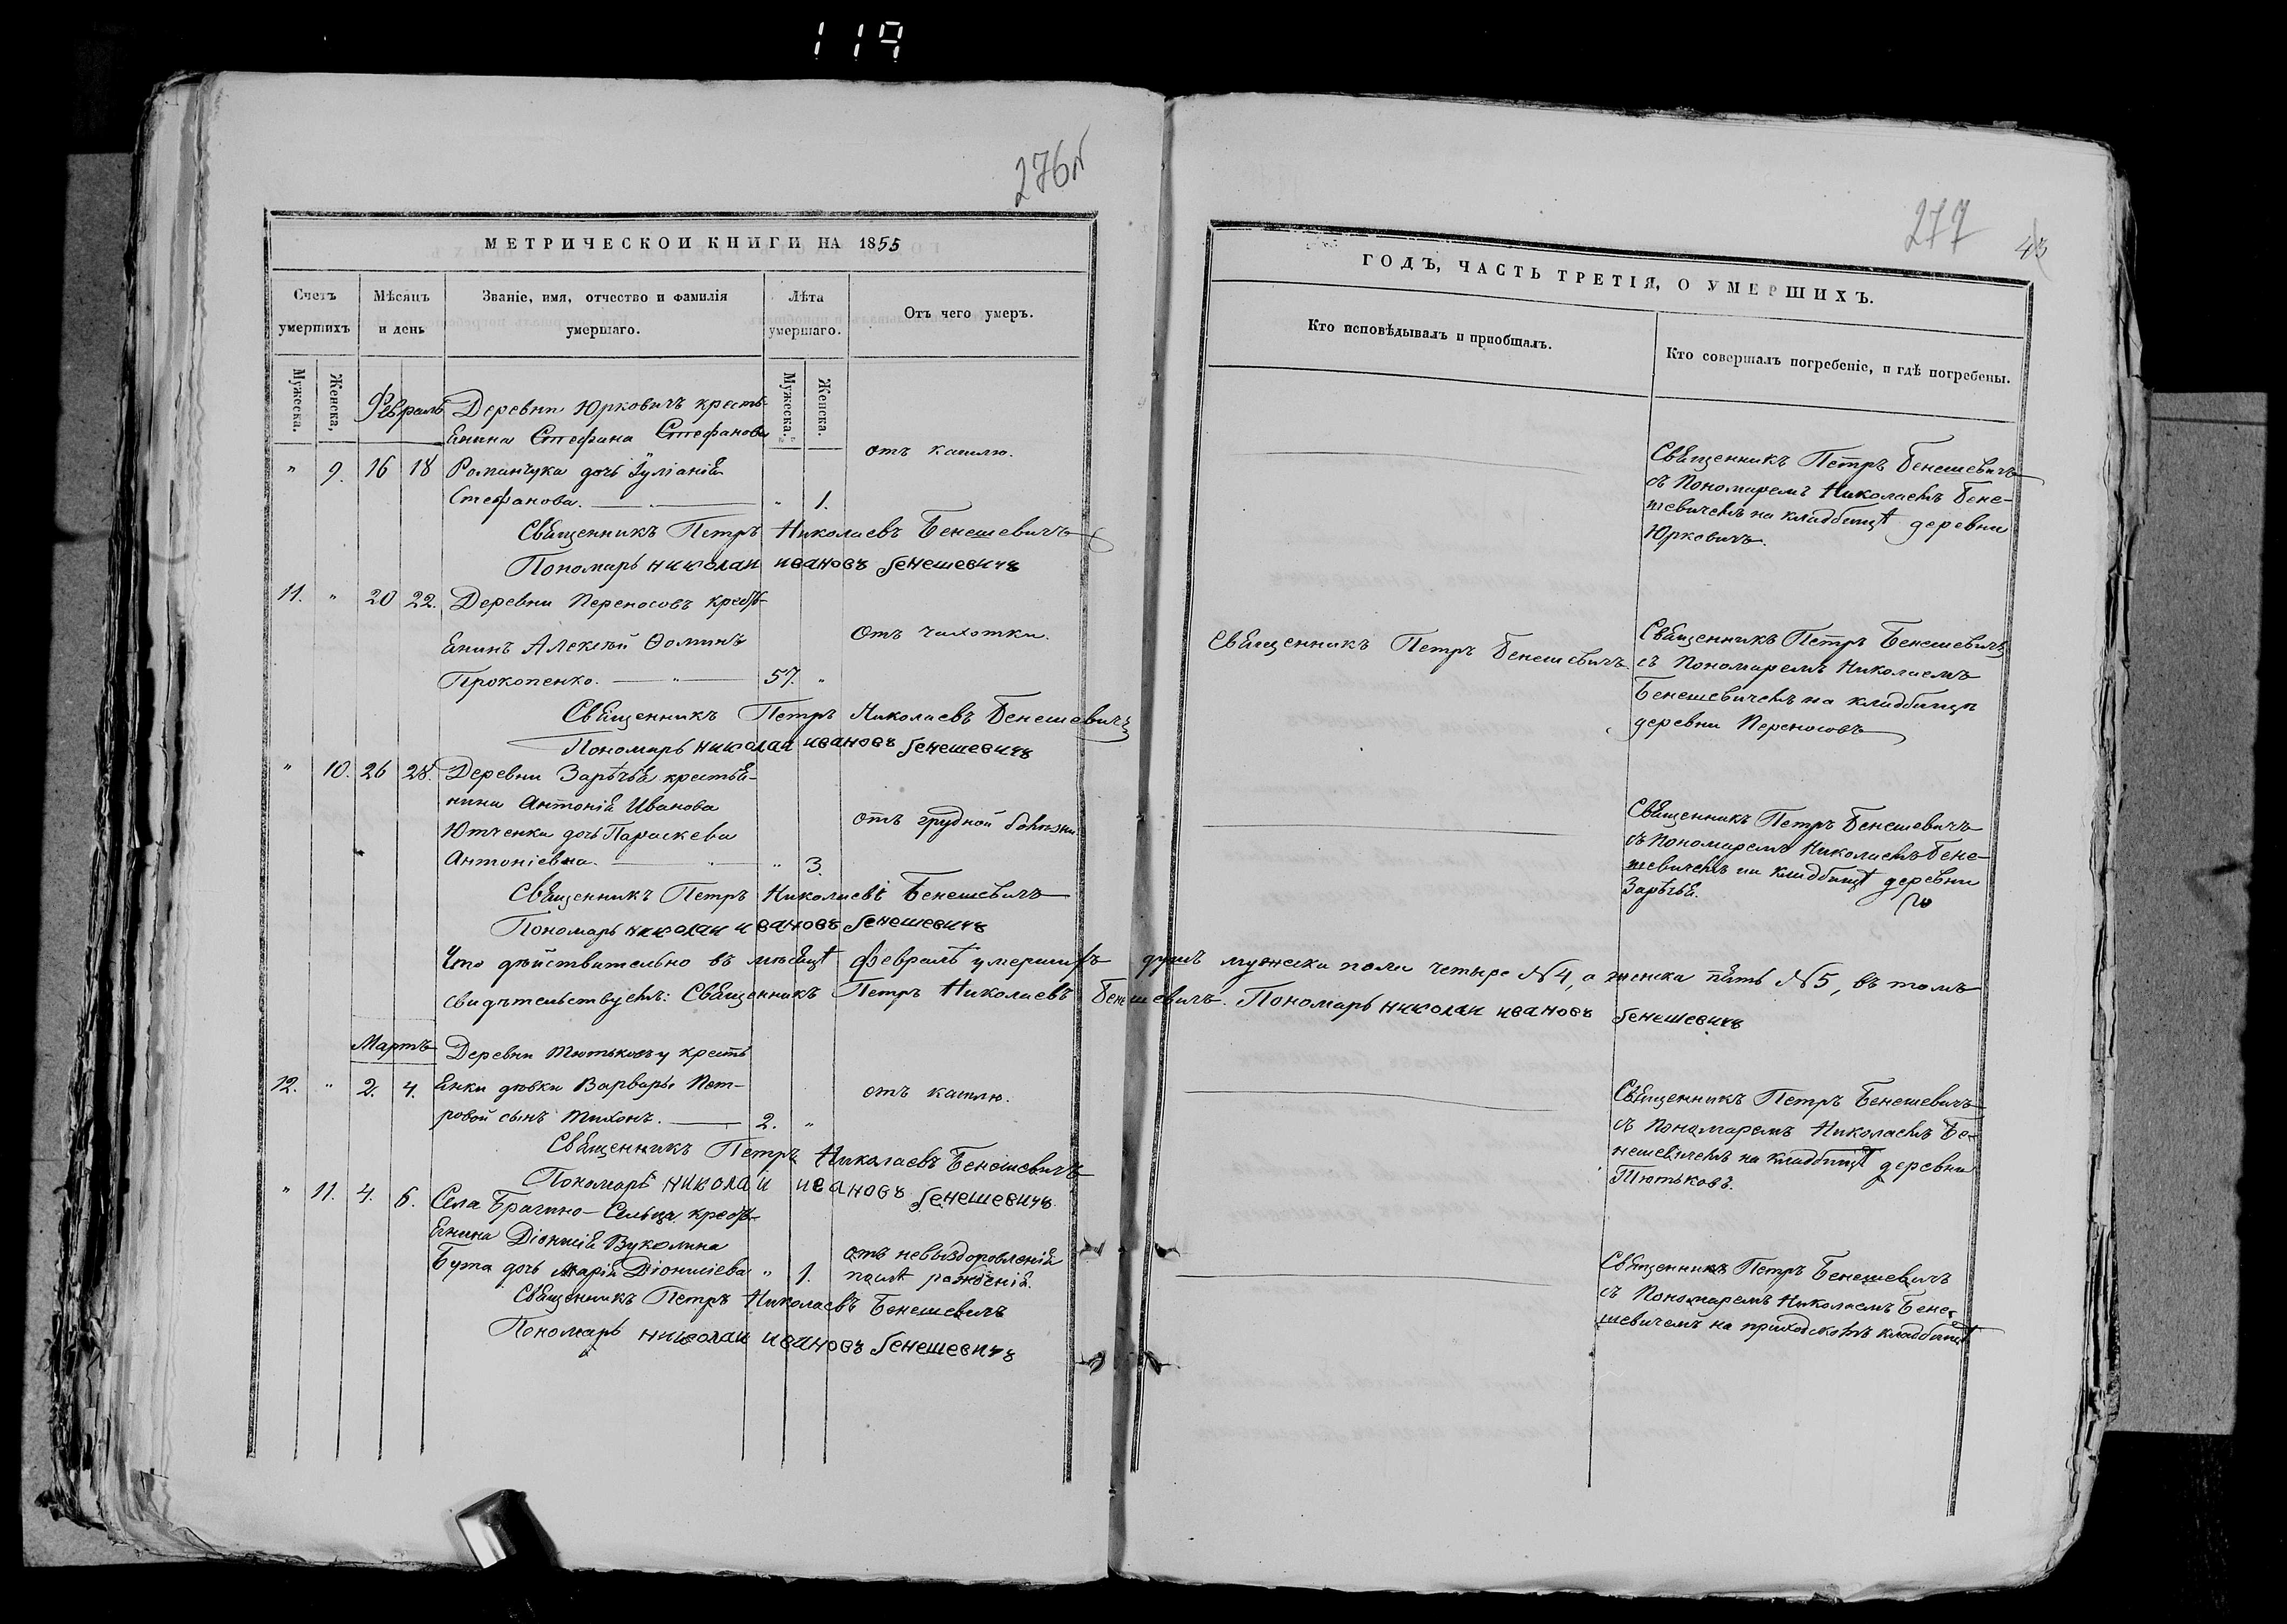 119
276
277
43
МЕТРИЧЕСКОЙ КНИГИ НА 1855
Счетъ умершихъ
Мѣсяцъ и день
Званіе, имя, отчество и фамилія умершаго.
Лѣта умершаго.
Отъ чего умеръ.
Мужеска.
Женска.
Мужеска.
Женска.
Февраль
Деревни Юрковичъ кресть-
янина Стефана Стефанова
" 9. 16 18 Романчука дочь Іуліанія
Стефанова. " 1.
отъ кашлю.
Священникъ Петръ Николаевъ Бенешевичъ
Пономарь Николай Ивановъ Бенешевичъ
11. " 20 22. Деревни Переносовъ кресть-
янинъ Алексѣй Ѳоминъ
Прокопенко. 57. "
Отъ чахотки.
Священникъ Петръ Николаевъ Бенешевичъ
Пономарь Николай Ивановъ Бенешевичъ
" 10. 26 28. Деревни Зарѣчья крестья-
нина Антонія Иванова
Ютченка дочь Параскева
Антоніевна. " 3.
отъ грудной болѣзни
Священникъ Петръ Николаевъ Бенешевичъ
Пономарь Николай Ивановъ Бенешевичъ
Что дѣйствительно въ мѣсяцѣ февралѣ умершихъ душъ мужеска пола четыре №4, а женска пять №5, въ томъ
свидѣтельствуемъ: Священникъ Петръ Николаевъ Бенешевичъ. Пономарь Николай Ивановъ Бенешевичъ
Мартъ
Деревни Тютьковъ кресть
12. " 2. 4. янки дѣвки Варвары Пет-
ровой сынъ Тихонъ. 2. "
отъ кашлю.
Священникъ Петръ Николаевъ Бенешевичъ
Пономарь Николай Ивановъ Бенешевичъ
" 11. 4. 6. Села Брагино-Сельца кресть-
янина Діонисія Вуколина
Бута дочь Марія Діонисіева " 1.
отъ невыздоровленія
послѣ рожденія.
Священникъ Петръ Николаевъ Бенешевичъ
Пономарь Николай Ивановъ Бенешевичъ
ГОДЪ, ЧАСТЬ ТРЕТІЯ, О УМЕРШИХЪ.
Кто исповѣдывалъ и пріобщалъ.
Кто совершалъ погребеніе, и гдѣ погребены.
Священникъ Петръ Бенешевичъ
съ Пономаремъ Николаемъ Бене-
шевичемъ на кладбищѣ деревни
Юрковичъ.
Священникъ Петръ Бенешевичъ.
Священникъ Петръ Бенешевичъ
съ Пономаремъ Николаемъ
Бенешевичемъ на кладбищѣ
деревни Переносовъ
Священникъ Петръ Бенешевичъ
съ Пономаремъ Николаемъ Бене-
шевичемъ на кладбищѣ деревни
Зарѣчья.
Священникъ Петръ Бенешевичъ
съ Пономаремъ Николаемъ Бе-
нешевичемъ на кладбищѣ деревни
Тютьковъ.
Священникъ Петръ Бенешевичъ
съ Пономаремъ Николаемъ Бене-
шевичемъ на приходскомъ кладбищѣ